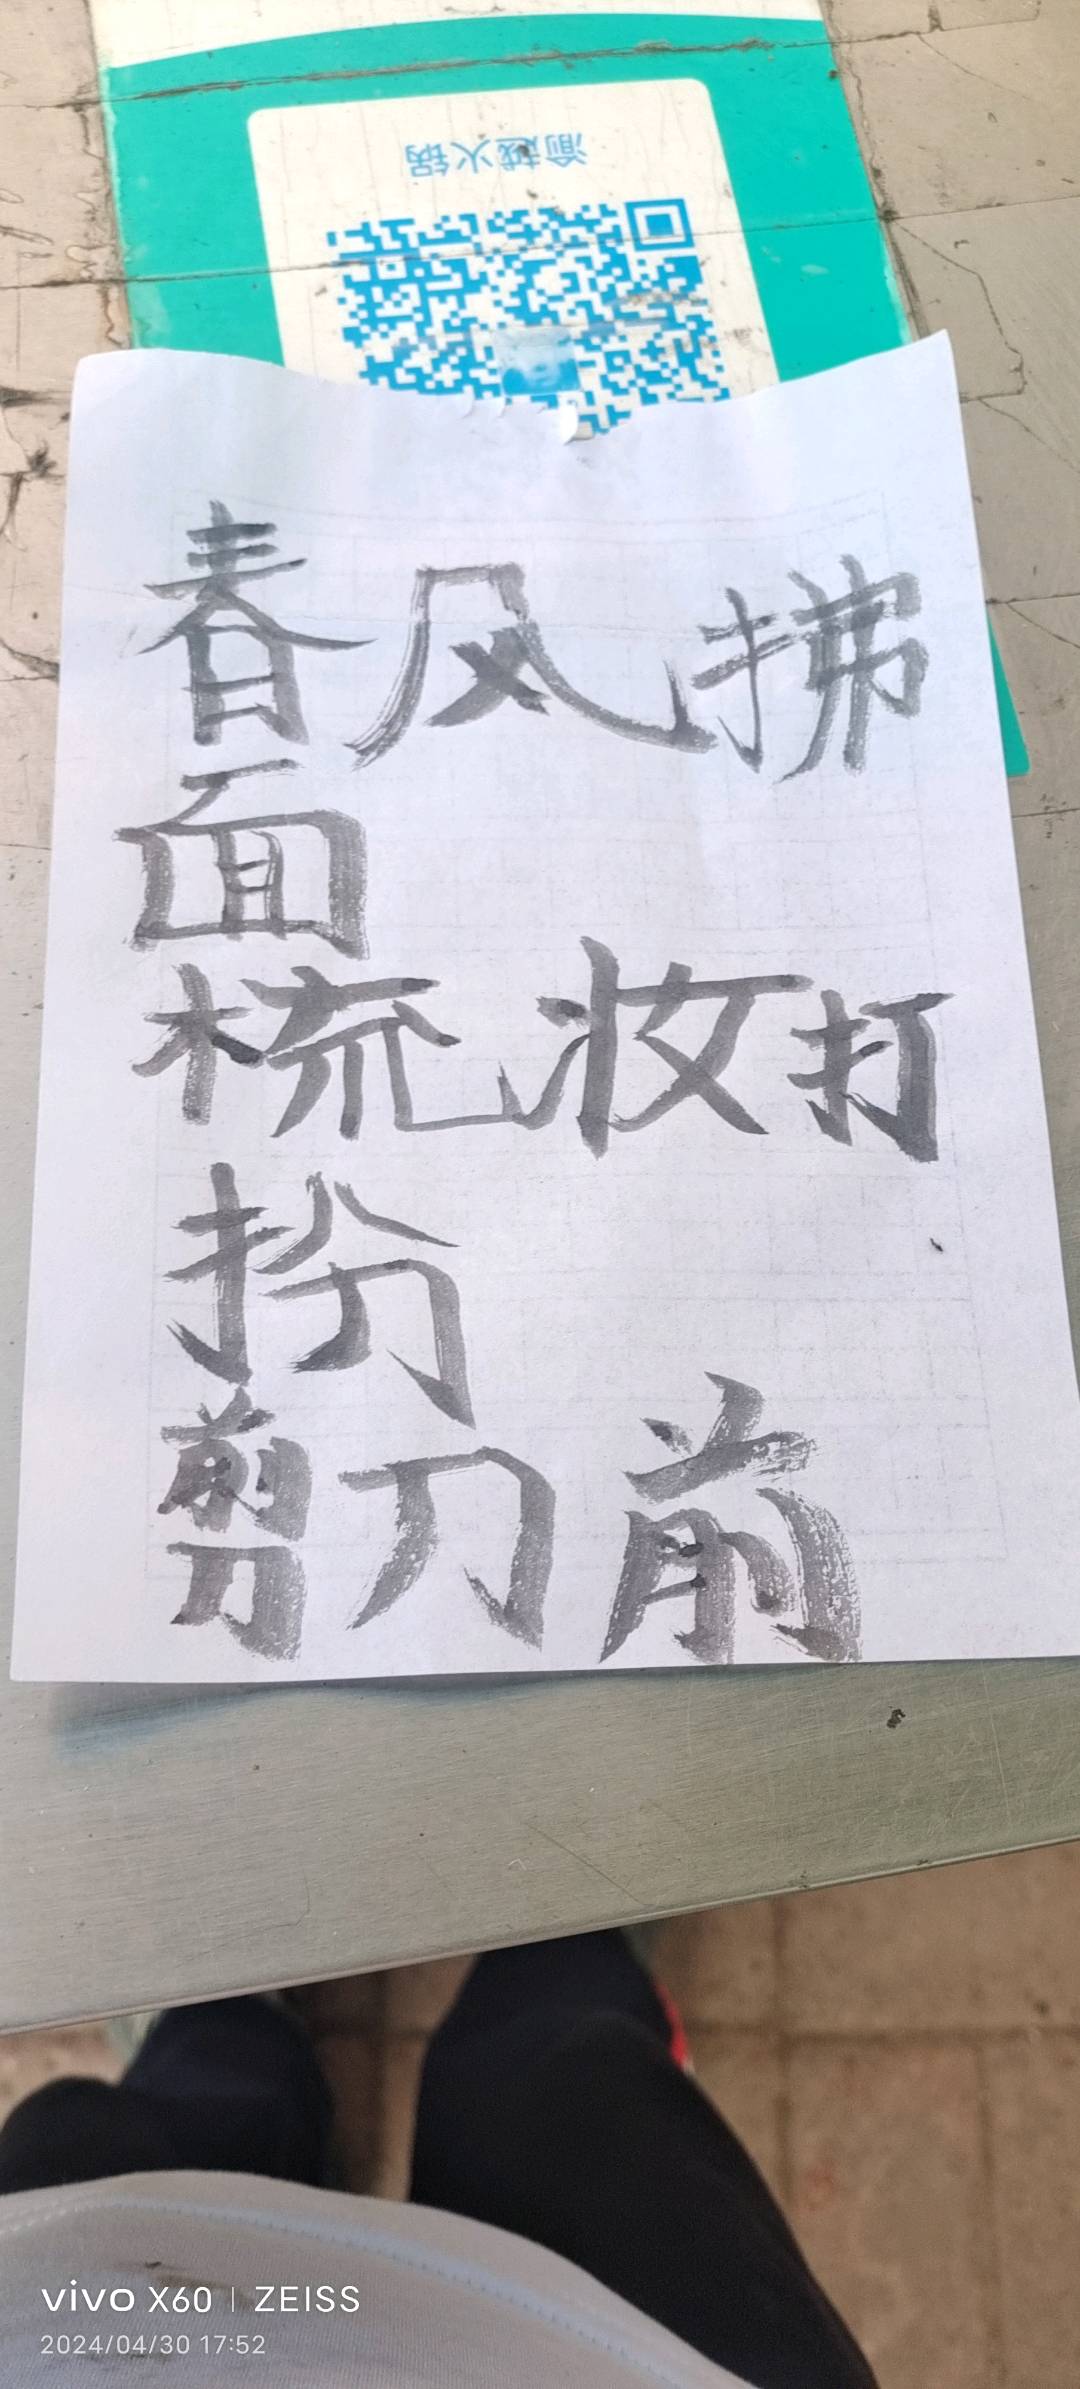 渝越火锅
春风拂
面
梳妆打
扮
剪刀前
vivo X60 | ZEISS
2024/04/30 17:52